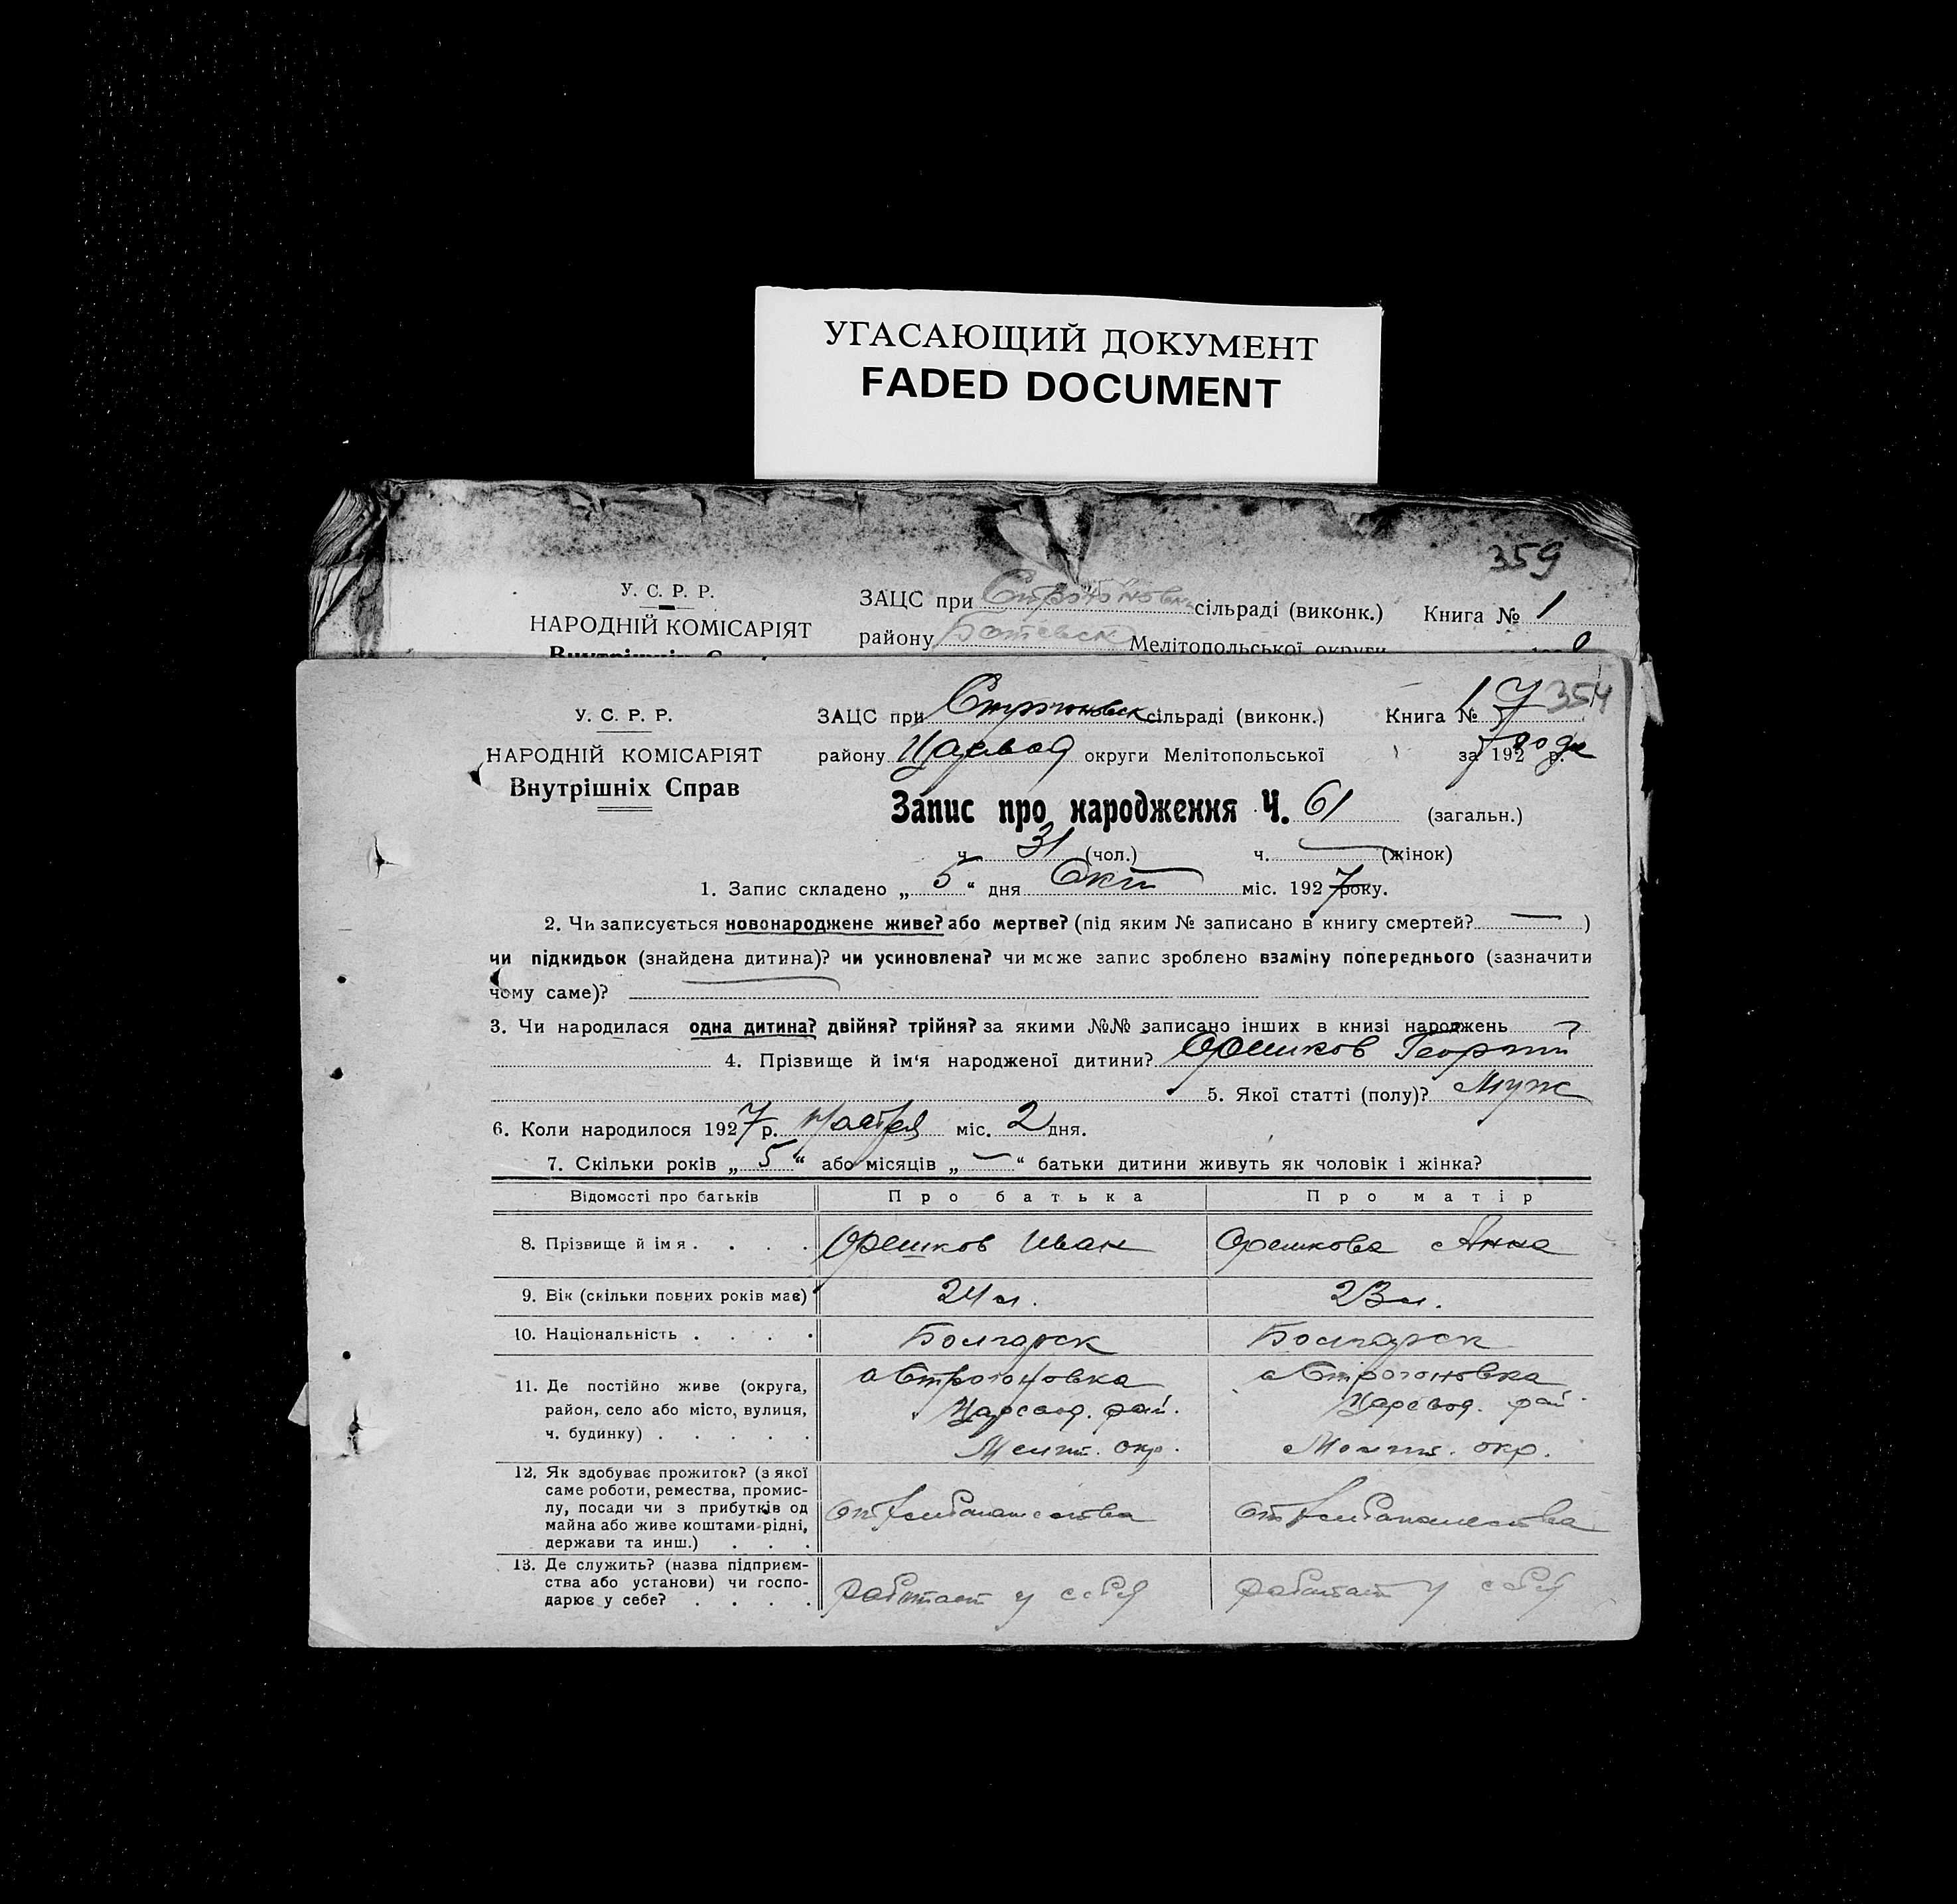 УГАСАЮЩИЙ ДОКУМЕНТ
FADED DOCUMENT
359
У. С. Р. Р.
ЗАЦС при Строгоновк сільраді (виконк.) Книга № 1
НАРОДНІЙ КОМІСАРІЯТ
району Ботевск Мелітопольської округи
354
У. С. Р. Р.
ЗАЦС при Строгоновск сільраді (виконк.) Книга № 1
НАРОДНІЙ КОМІСАРІЯТ
району Царевод округи Мелітопольської за 1927 р.
Внутрішніх Справ
Запис про народження Ч. 61 (загальн.)
ч. 31 (чол.) ч. — (жінок)
1. Запис складено „ 5 “ дня Окт міс. 1927 року.
2. Чи записується новонароджене живе? або мертве? (під яким № записано в книгу смертей? — )
чи підкидьок (знайдена дитина)? чи усиновлена? чи може запис зроблено взаміну попереднього (зазначити
чому саме)?
3. Чи народилася одна дитина? двійня? трійня? за якими №№ записано інших в книзі народжень
4. Прізвище й ім‘я народженої дитини? Орешков Георгий
5. Якої статті (полу)? Муж
6. Коли народилося 1927 р. міс. 2 дня.
7. Скільки років „ 5 “ або місяців „ — “ батьки дитини живуть як чоловік і жінка?
Відомості про батьків Про батька Про матір
8. Прізвище й імя . . . . Орешков Иван Орешкова Анна
9. Вік (скільки повних років має) 24 л. 23 л.
10. Національність . . . . Болгарск Болгарск
11. Де постійно живе (округа, с Строгоновка с Строгоновка
район, село або місто, вулиця, Царевод. рай. Царевод. рай.
ч. будинку) . . . . . Мелит. окр. Мелит. окр.
12. Як здобуває прожиток? (з якої
саме роботи, ремества, промис-
лу, посади чи з прибутків од от хлебопашества от хлебопашества
майна або живе коштами рідні,
держави та инш.) . . .
13. Де служить? (назва підприєм-
ства або установи) чи госпо- работает у себя работает у себя
дарює у себе? . . . .